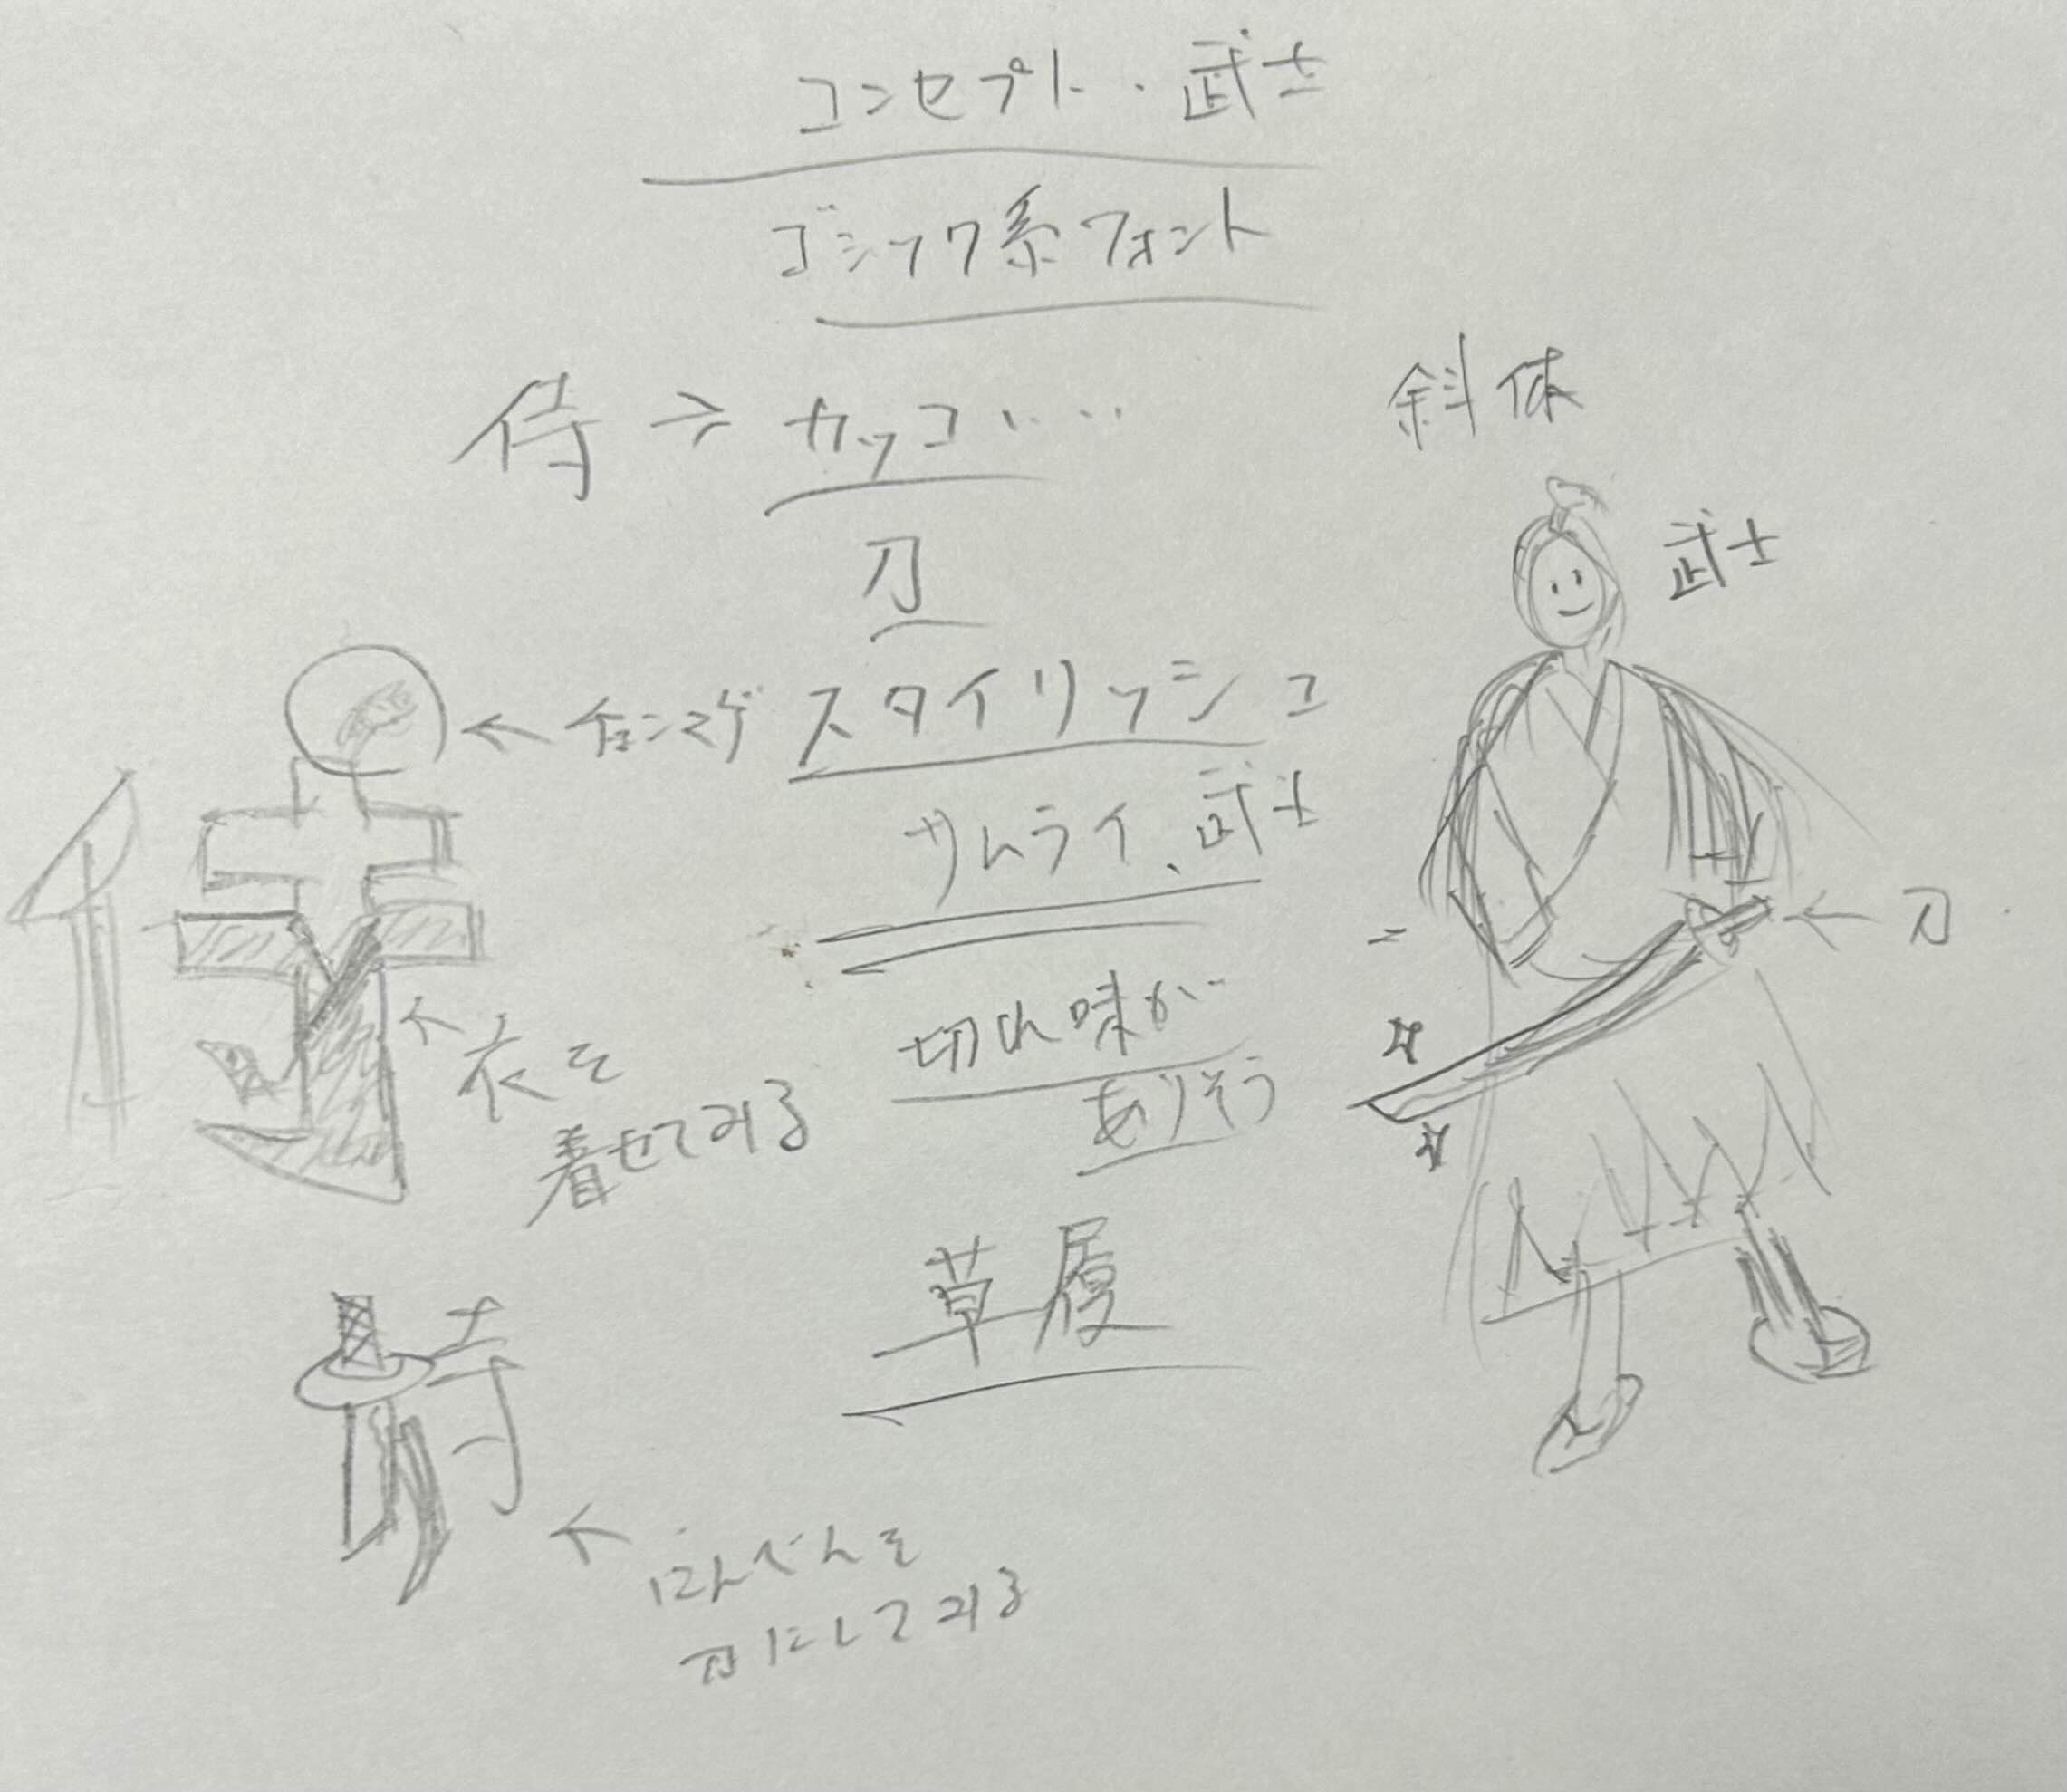 コンセプト・武士
ゴシック系フォント
侍 → カッコいい
斜体
刀
武士
← チョンマゲ
スタイリッシュ
サムライ、武士
← 刀
← 衣を
着せてみる
切れ味が
ありそう
草履
侍
← にんべんを
刀にしてみる